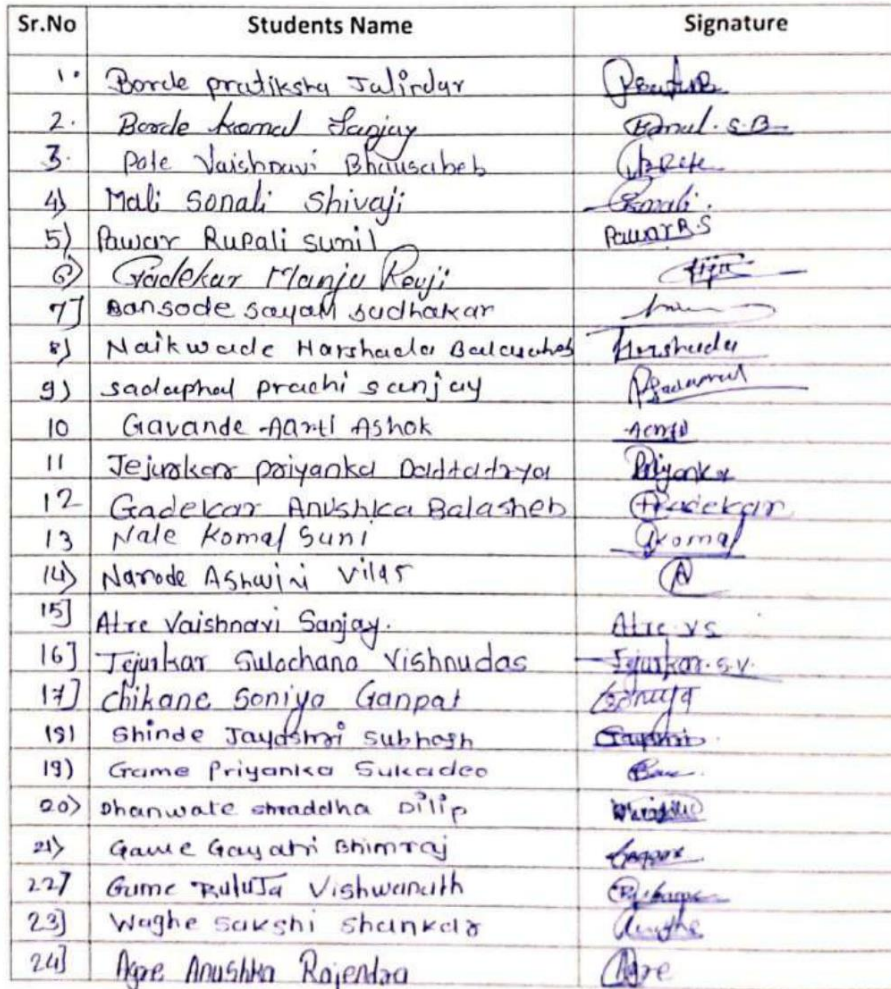 Sr.No Students Name Signature
1. Borde pratiksha Jalindar
2. Borde komal Sanjay Komal. S.B
3. Pote Vaishnavi Bhausaheb
4) Mali Sonali Shivaji Sonali.
5) Pawar Rupali Sunil Pawar R.S
6) Gadekar Manju Revji
7] Bansode sayali sudhakar
8) Naikwade Harshada Balasaheb Harshada
9) sadaphal prachi sanjay PSadaphal
10 Gavande Aarti Ashok
11 Jejurkar priyanka Dattatrya Priyanka
12 Gadekar Anushka Balasheb Gadekar
13 Nale Komal Suni Komal
14) Narode Ashwini Vilas A
15] Atre Vaishnavi Sanjay. Atre V S
16] Jejurkar Sulochana Vishnudas Jejurkar.S.V.
17] Chikane Soniya Ganpat Soniya
18) Shinde Jayashri Subhash
19) Game Priyanka Sukadeo
20) Dhanwate shraddha Dilip
21) Game Gayatri Bhimraj
22] Game RutuJa Vishwanath
23] Waghe Sakshi Shankar Waghe
24] Agre Anushka Rajendra Agre